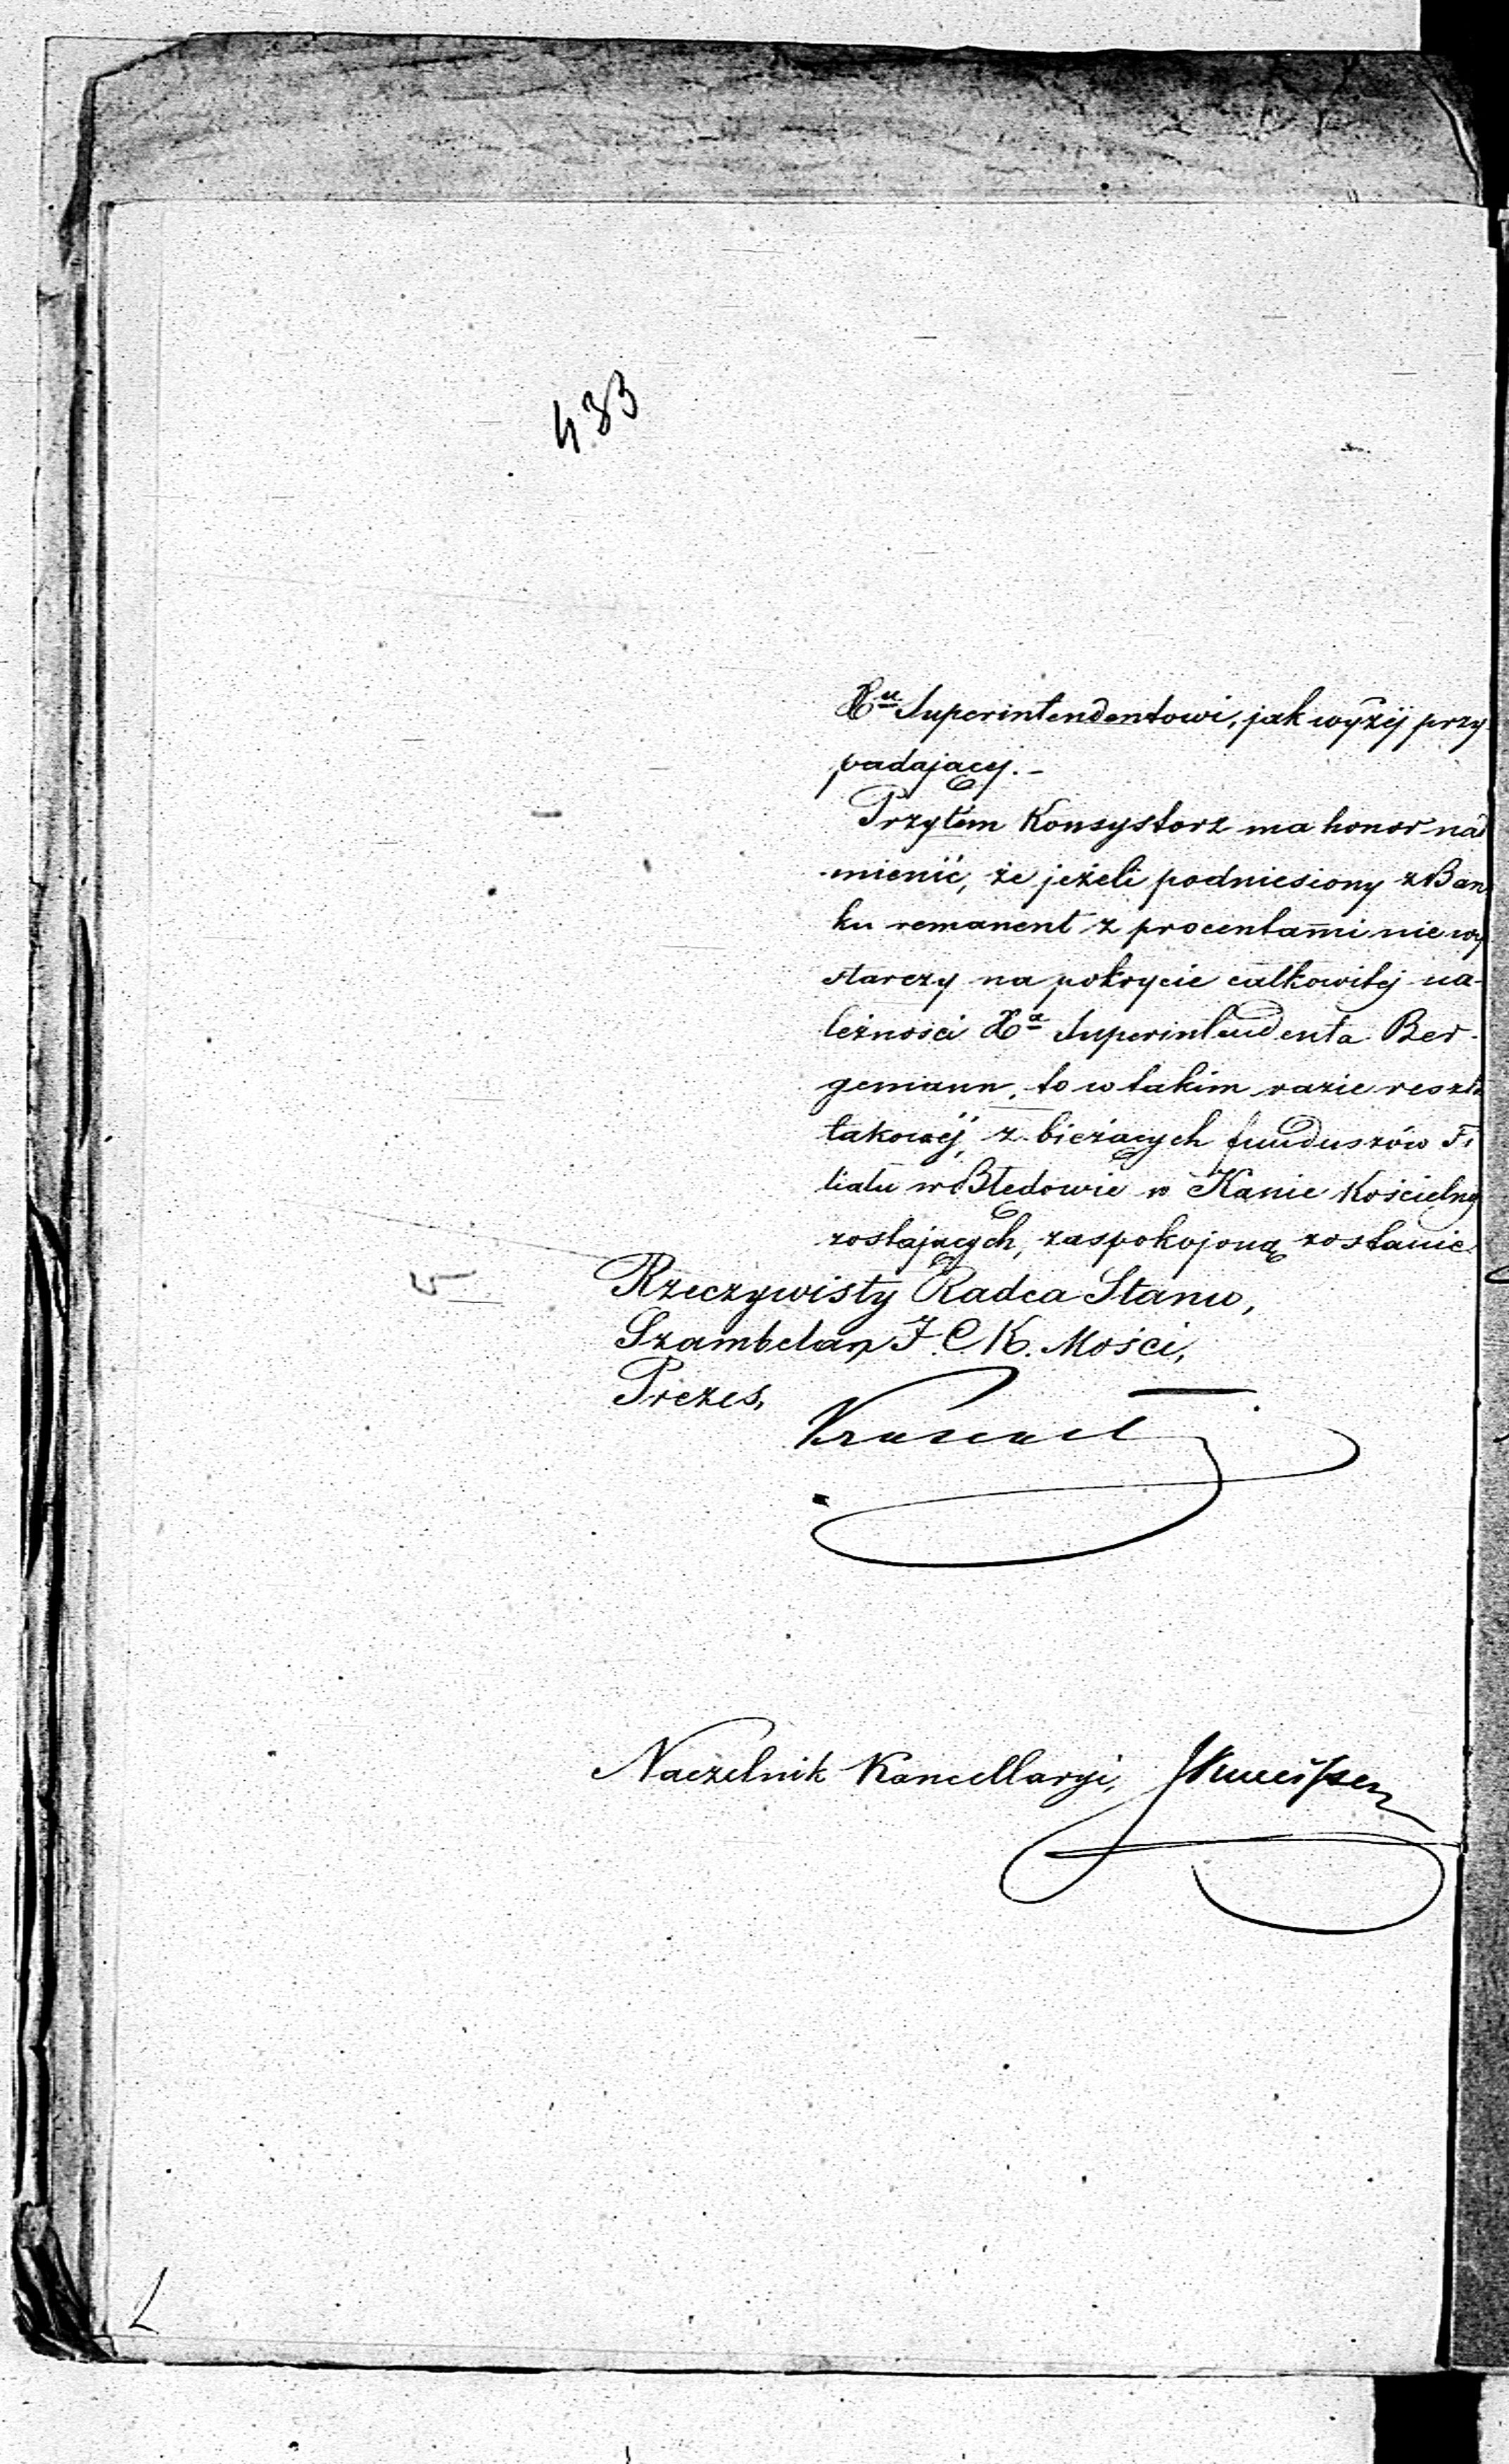 433
Xu Superintendentowi, jak wyżéj przy
padającéj.-
Przytém Konsystorz ma honor nad
-mienić, że jeżeli podniesiony z Ban
ku remanent z procentami nie wy
starczy na pokrycie całkowitéj na-
leżności Xa Superintendenta Ber-
gemann, to w takim razie reszta
takowéj, z bieżących funduszów Fi
liału w Błędowie w Kasie Kościelnéj
zostających, zaspokojoną zostanie.
Rzeczywisty Radca Stanu,
Szambelan J. C. K. Mości,
Prezes,
Naczelnik Kancellaryi,